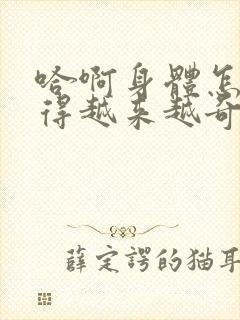 哈啊身體怎
得越来越奇
薛定諤的猫耳